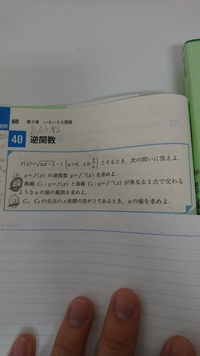 68 第3章 いろいろな関数
40 逆関数
f(x)=√ax-2-1 (a>0, x≧2/a) とするとき, 次の問いに答えよ.
(1) y=f(x) の逆関数 y=f⁻¹(x) を求めよ.
曲線 C₁: y=f(x) と曲線 C₂: y=f⁻¹(x) が異なる2点で交わる
ような a の値の範囲を求めよ.
C₁, C₂ の交点の x 座標の差が2であるとき, a の値を求めよ.